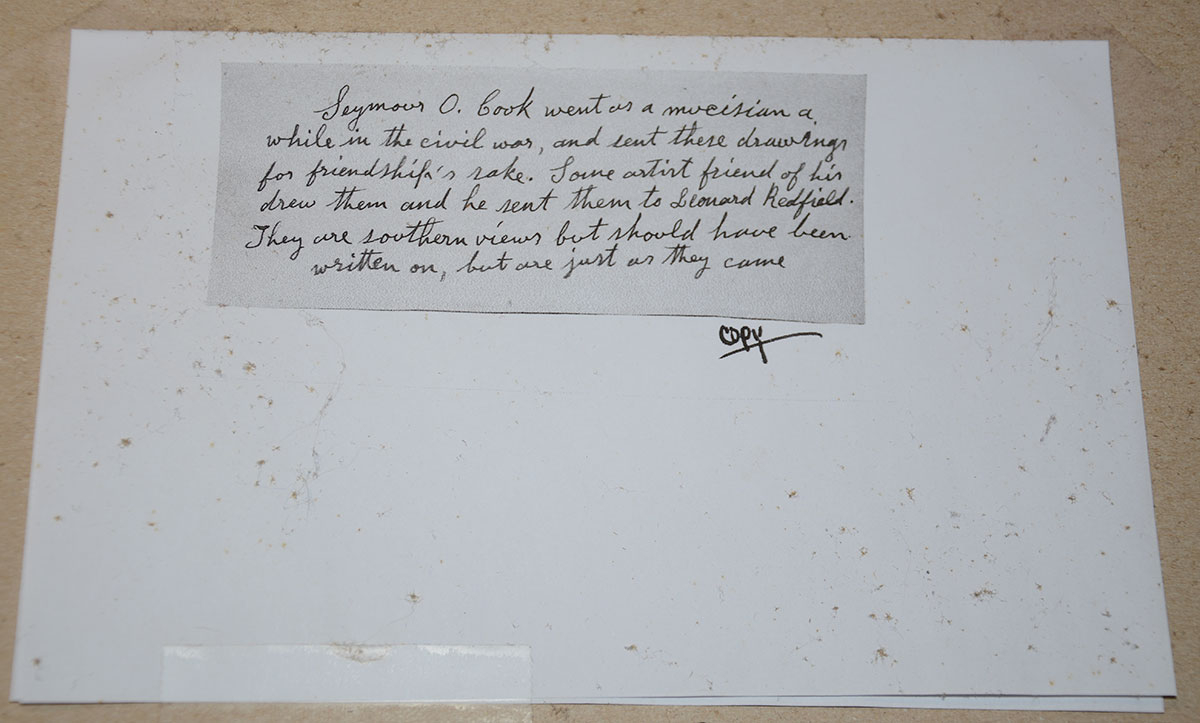 Seymour O. Cook went as a mucisian a
while in the civil war, and sent these drawings
for friendship's sake. Some artist friend of his
drew them and he sent them to Leonard Redfield.
They are southern views but should have been
written on, but are just as they came
COPY